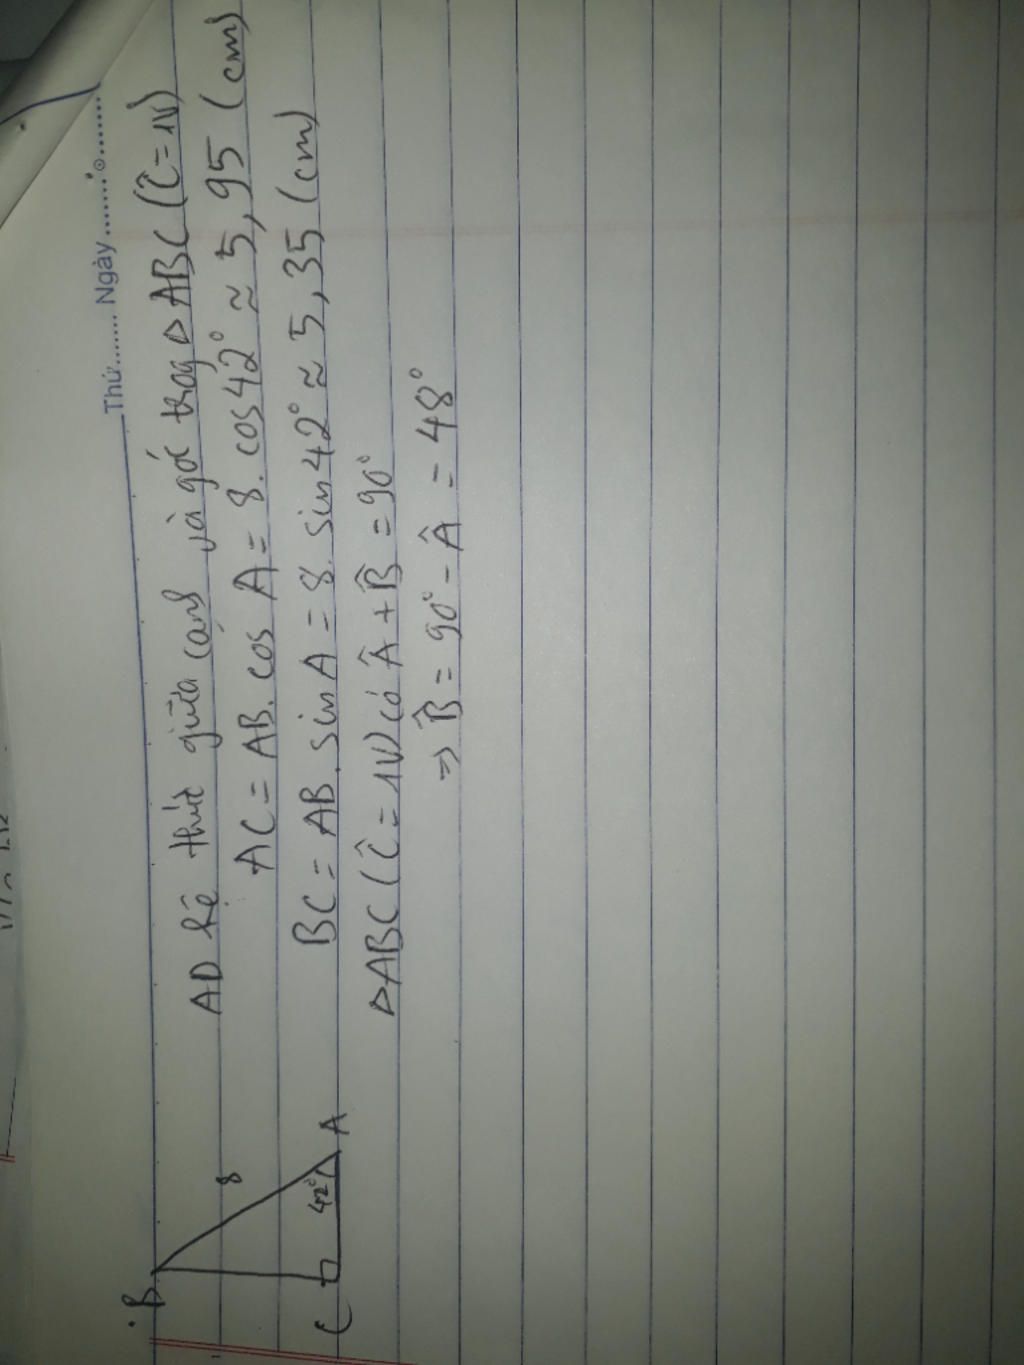 Thứ........ Ngày........
B
8
42°
C
A
AD hệ thức giữa cạnh và góc trog △ABC (Ĉ = 1V)
AC = AB. cos A = 8. cos 42° ≈ 5,95 (cm)
BC = AB. sin A = 8. sin 42° ≈ 5,35 (cm)
△ABC (Ĉ = 1V) có Â + B̂ = 90°
⇒ B̂ = 90° - Â = 48°